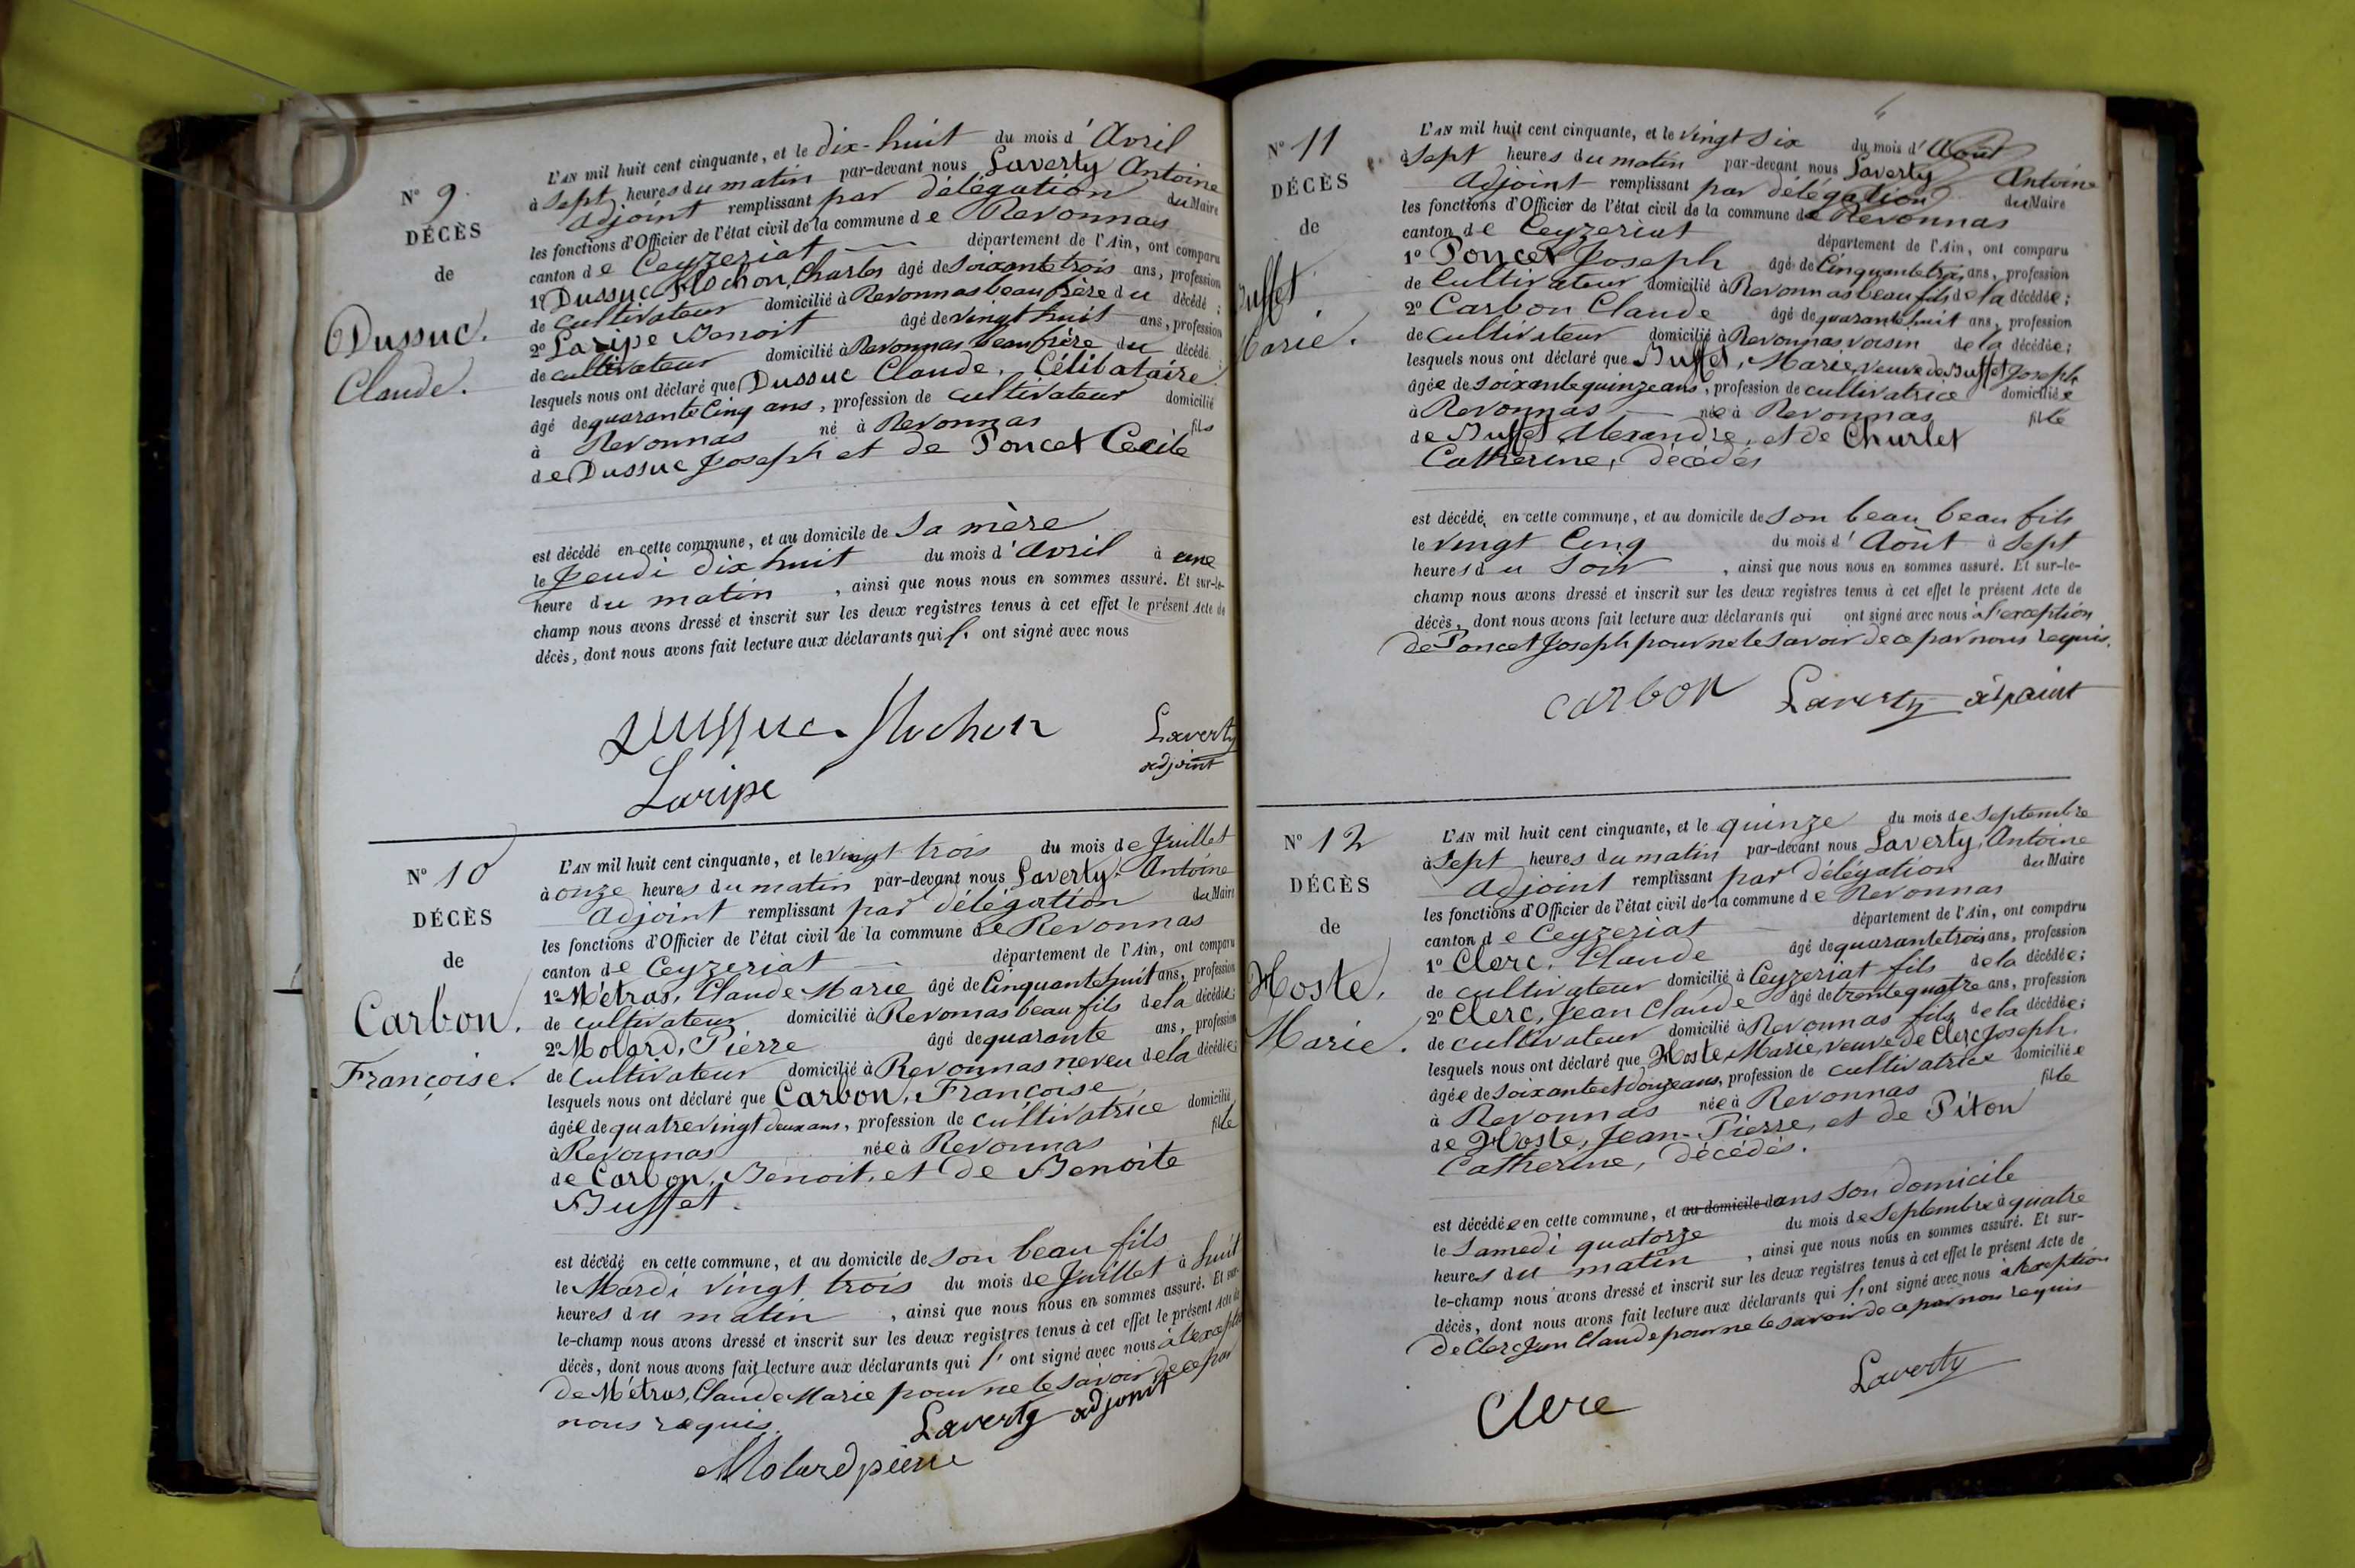 N° 9.
DÉCÈS
de
Dussuc.
Claude.
L'AN mil huit cent cinquante, et le dix-huit du mois d'Avril
à Sept heures du matin par-devant nous Laverty Antoine
Adjoint remplissant par délégation du Maire
les fonctions d'Officier de l'état civil de la commune de Revonnas
canton de Ceyzeriat département de l'Ain, ont comparu
1° Dussuc Flochon, Charles âgé de Soixante trois ans, profession
de cultivateur domicilié à Revonnas beau frère du décédé;
2° Laripe Benoit âgé de vingt huit ans, profession
de cultivateur domicilié à Revonnas beaufrère du décédé
lesquels nous ont déclaré que Dussuc Claude, Célibataire
âgé de quarante Cinq ans, profession de cultivateur domicilié
à Revonnas né à Revonnas fils
de Dussuc Joseph et de Poncet Cecile
est décédé en cette commune, et au domicile de Sa mère
le Jeudi dix huit du mois d'Avril à une
heure du matin, ainsi que nous nous en sommes assuré. Et sur-le-
champ nous avons dressé et inscrit sur les deux registres tenus à cet effet le présent Acte de
décès, dont nous avons fait lecture aux déclarants qui l' ont signé avec nous
Dussuc. Flochon Laverty
adjoint
Laripe
N° 10
DÉCÈS
de
Carbon.
Françoise.
L'AN mil huit cent cinquante, et le vingt trois du mois de Juillet
à onze heures du matin par-devant nous Laverty. Antoine
Adjoint remplissant par délégation du Maire
les fonctions d'Officier de l'état civil de la commune de Revonnas
canton de Ceyzeriat département de l'Ain, ont comparu
1° Métras, Claude Marie âgé de Cinquante huit ans, profession
de cultivateur domicilié à Revonnas beau fils de la décédée;
2° Molard, Pierre âgé de quarante ans, profession
de Cultivateur domicilié à Revonnas neveu de la décédée;
lesquels nous ont déclaré que Carbon, Françoise,
âgée de quatre vingt deux ans, profession de cultivatrice domicilié
à Revonnas née à Revonnas fille
de Carbon, Benoit, et de Benoite
Buffet.
est décédé en cette commune, et au domicile de Son beau fils
le Mardi vingt trois du mois de Juillet à huit
heures du matin, ainsi que nous nous en sommes assuré. Et sur-
le-champ nous avons dressé et inscrit sur les deux registres tenus à cet effet le présent Acte de
décès, dont nous avons fait lecture aux déclarants qui l' ont signé avec nous à l'exception
de Métras, Claude Marie pour ne le savoir de ce par
nous requis. Laverty adjoint
Molard pierre
N° 11
DÉCÈS
de
Buffet
Marie.
L'AN mil huit cent cinquante, et le vingt Six du mois d'Août
à Sept heures du matin par-devant nous Laverty Antoine
Adjoint remplissant par délégation du Maire
les fonctions d'Officier de l'état civil de la commune de Revonnas
canton de Ceyzeriat département de l'Ain, ont comparu
1° Poncet Joseph âgé de Cinquante trois ans, profession
de Cultivateur domicilié à Revonnas beau fils de la décédée;
2° Carbon Claude âgé de quarante huit ans, profession
de Cultivateur domicilié à Revonnas voisin de la décédée;
lesquels nous ont déclaré que Buffet, Marie, veuve de Buffet Joseph
âgée de soixante quinze ans, profession de cultivatrice domiciliée
à Revonnas née à Revonnas fille
de Buffet Alexandre, et de Churlet
Catherine, décédés
est décédé, en cette commune, et au domicile de Son beau beau fils
le vingt Cinq du mois d'Août à Sept
heures du Soir, ainsi que nous nous en sommes assuré. Et sur-le-
champ nous avons dressé et inscrit sur les deux registres tenus à cet effet le présent Acte de
décès, dont nous avons fait lecture aux déclarants qui ont signé avec nous à l'exception
de Poncet Joseph pour ne le Savoir de ce par nous requis.
carbon Laverty adjoint
N° 12
DÉCÈS
de
Hoste,
Marie.
L'AN mil huit cent cinquante, et le quinze du mois de Septembre
à Sept heures du matin par-devant nous Laverty, Antoine
Adjoint remplissant par délégation du Maire
les fonctions d'Officier de l'état civil de la commune de Revonnas
canton de Ceyzeriat département de l'Ain, ont comparu
1° Clerc, Claude âgé de quarante trois ans, profession
de cultivateur domicilié à Ceyzeriat fils de la décédée;
2° Clerc, Jean Claude âgé de trente quatre ans, profession
de cultivateur domicilié à Revonnas fils de la décédée;
lesquels nous ont déclaré que Hoste, Marie, veuve de Clerc Joseph.
âgée de Soixante et douze ans, profession de cultivatrice domiciliée
à Revonnas née à Revonnas fille
de Hoste, Jean-Pierre, et de Piton
Catherine, décédés.
est décédée en cette commune, et au domicile dans Son domicile
le Samedi quatorze du mois de Septembre à quatre
heures du matin, ainsi que nous nous en sommes assuré. Et sur-
le-champ nous avons dressé et inscrit sur les deux registres tenus à cet effet le présent Acte de
décès, dont nous avons fait lecture aux déclarants qui l' ont signé avec nous à l'exception
de Clerc Jean Claude pour ne le savoir de ce par nous requis
Clerc Laverty